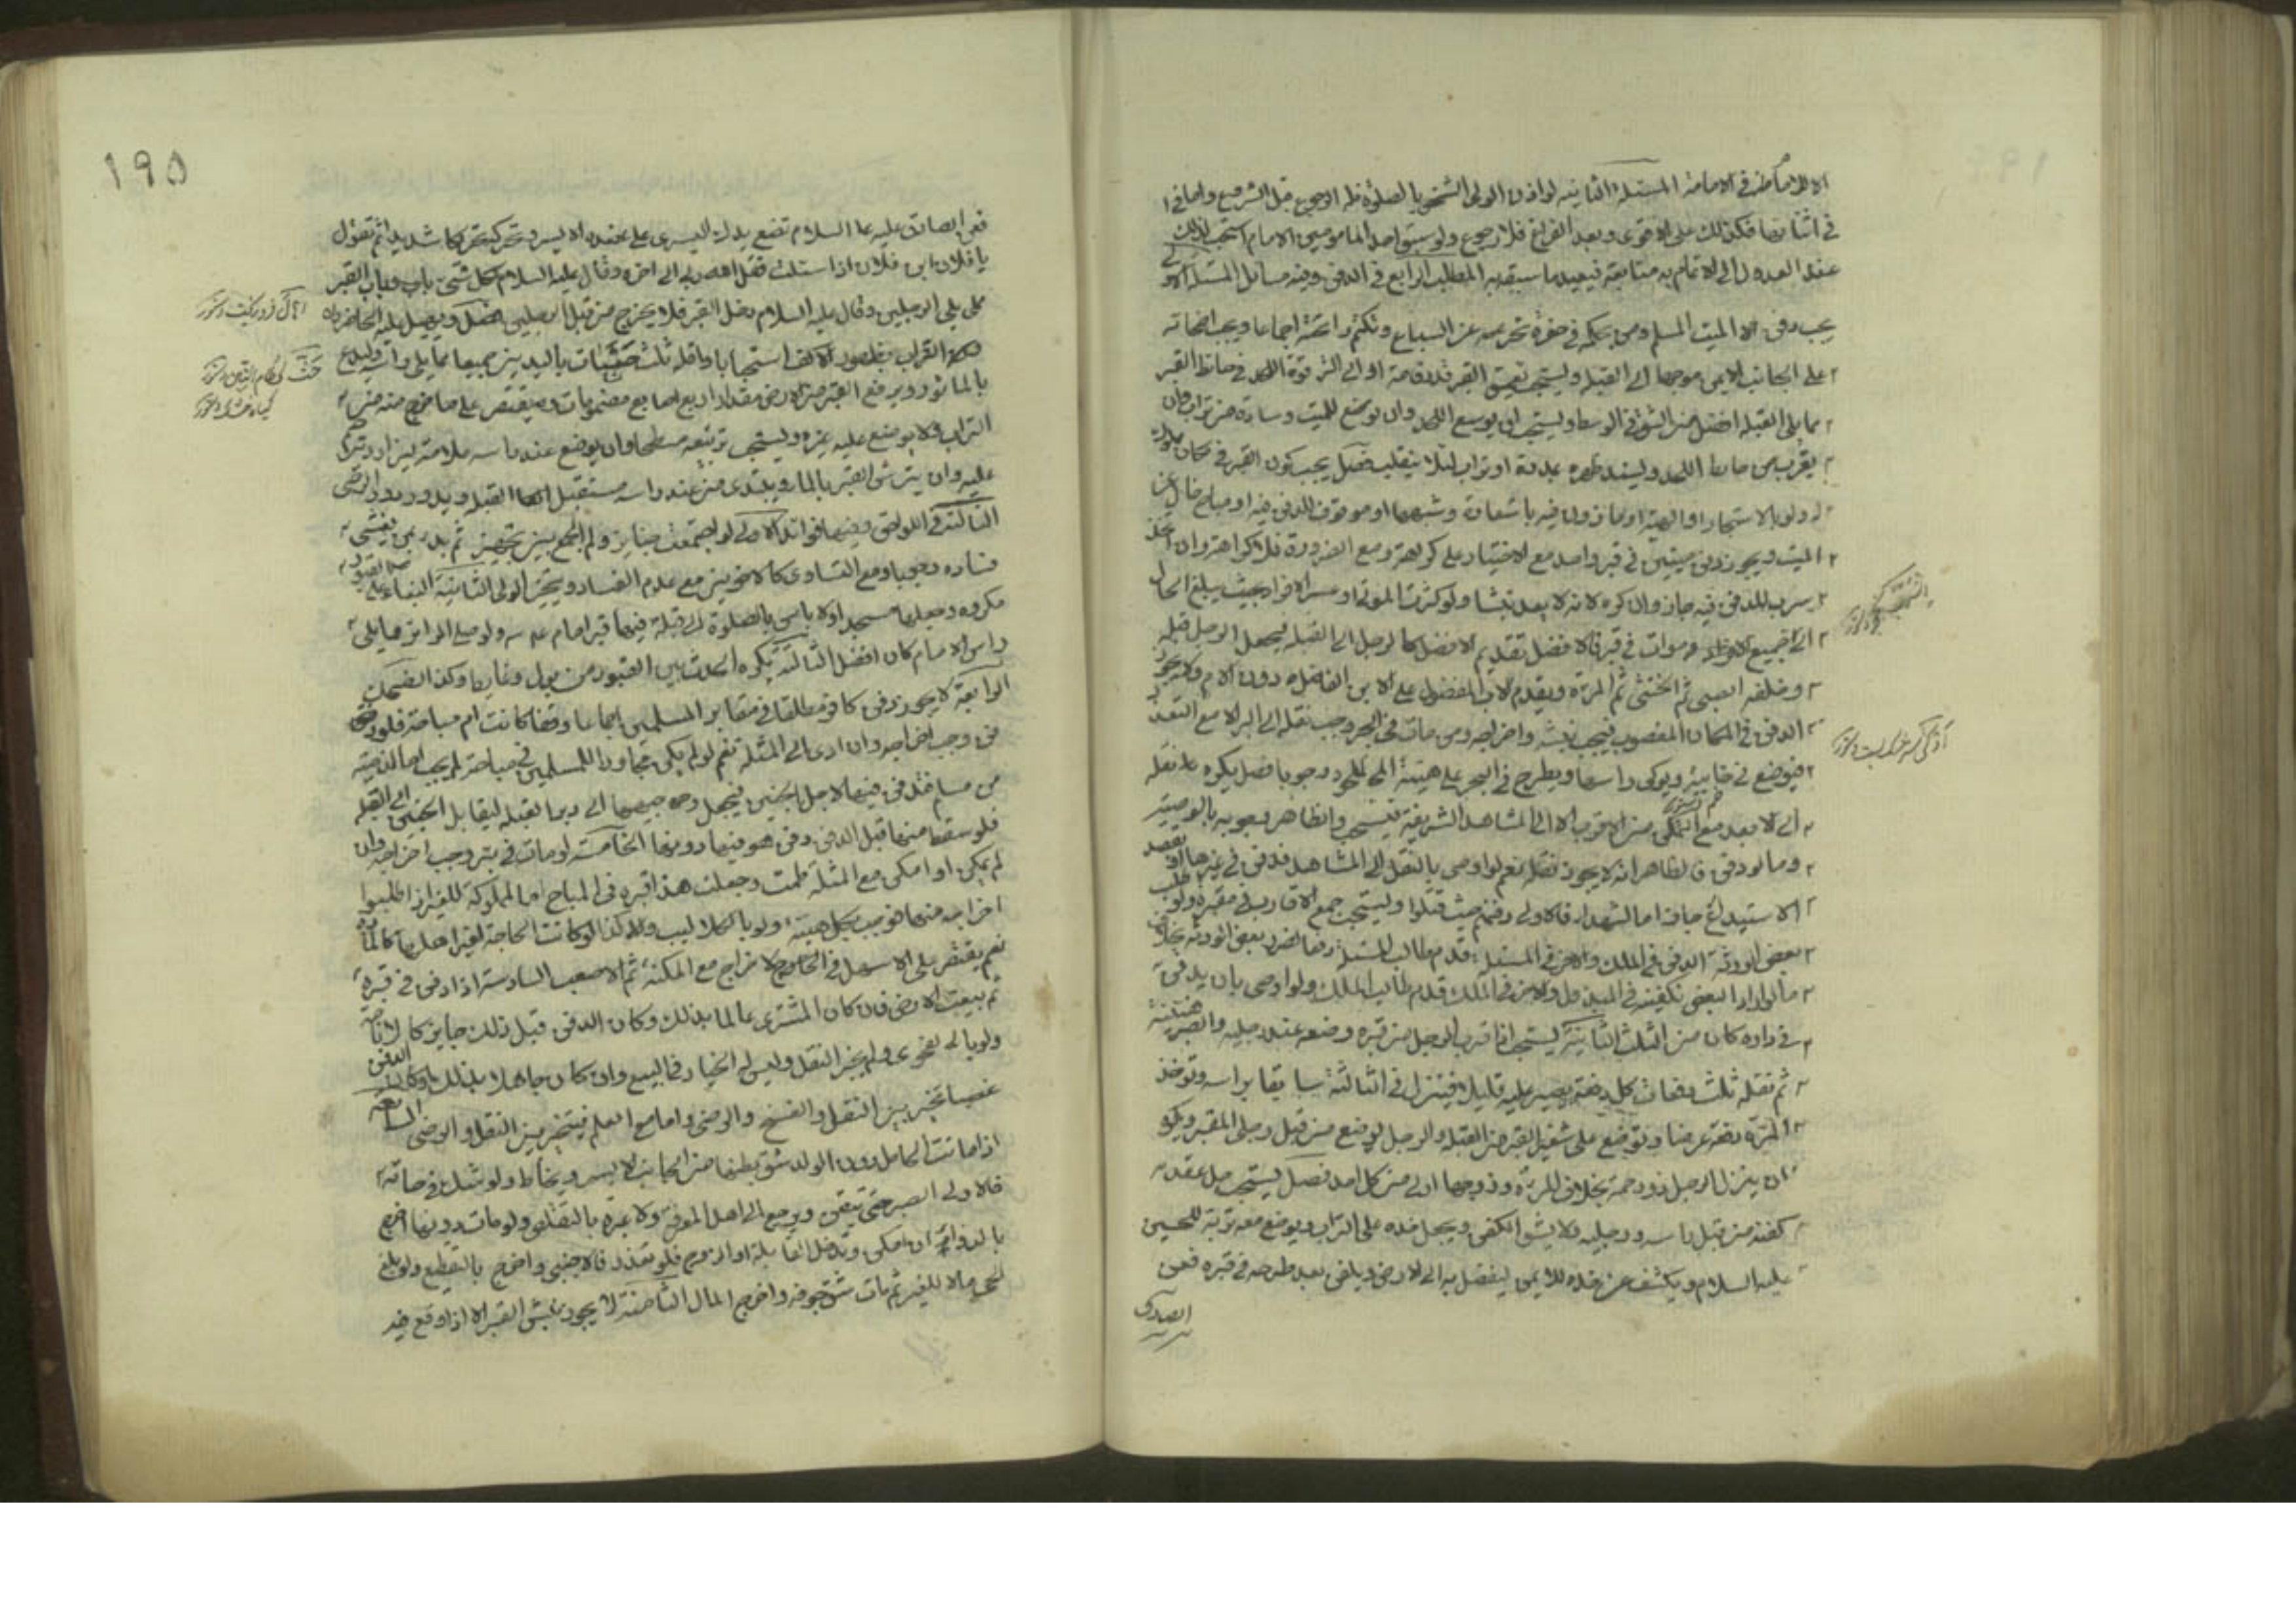 في الامامة المسئلة الثانية لو اذن الولي لشخص بالصلوة فله الرجوع قبل الشروع واما في
في اثنائها فكذلك على الاقوى وبعد الفراغ فلا رجوع ولو سبق احد المامومين الامام استحب
عند العدول الى الائتمام به متابعة فيعيد ما سبقه به المطلب الرابع في الدفن وفيه مسائل
يجب دفن الميت المسلم ومن بحكمه في حفرة تحرسه عن السباع وتكتم رائحته اجماعا ويجب اضجاعه
على الجانب الايمن موجها الى القبلة ويستحب تعميق القبر قامة او الى الترقوة اللحد في حائط القبر
مما يلي القبلة افضل من الشق في الوسط ويستحب ان يوسع اللحد وان يوضع للميت وسادة من تراب وان
يقرب من حائط اللحد ويسند ظهره بمدرة او تراب لئلا ينقلب فصل يجب كون القبر في مكان
له ولو بالاستيجار او الهبة او ماذونا فيه او موقوف للدفن فيه او مباح خال عن
الميت ويجوز دفن ميتين في قبر واحد مع الاختيار على كراهة ومع الضرورة فلا كراهة وان اتخذ
سرب للدفن فيه جاز وان كره لانه لا يعد نبشا ولو كثرت الموتى وعسر الافراد بحيث يبلغ الحال
الى جميع في قبر فالافضل تقديم الافضل كالرجل الى القبلة ليجعل الرجل قبله
وخلفه الصبي ثم الخنثى ثم المرئة ويقدم الاب المفضول على الابن الفاضل دون الام ولا يجوز
الدفن في المكان المغصوب فيجب نبشه واخراجه ومن مات في البحر وجب نقله الى البر الا مع التعذر
فيوضع في خابية ويوكى راسها ويطرح في البحر على هيئة الملحود وجوبا فصل يكره نقله
الى الابعد مع التمكن من الاقرب الا الى المشاهد الشريفة فيستحب والظاهر وجوبه بالوصية
وما لو دفن فالظاهر انه لا يجوز نقله نعم لو اوصى بالنقل الى المشاهد فدفن في غيرها
الاستيداع جاز اما الشهداء فالاولى دفنهم حيث قتلوا ويستحب جمع الاقارب في مقبرة ولو طلب
بعض الورثة الدفن في الملك والاخر في المسبل قدم طالب المسبل دفعا لضرر بعض الورثة بخلاف
ما لو اراد البعض تكفينه في المبذول والاخر في الملك قدم طالب الملك ولو اوصى بان يدفن
في داره كان من الثلث الثانية يستحب اذا قرب الرجل من قبره وضعه عند رجليه والصبر هنيئة
ثم نقله ثلث دفعات كل دفعة يصبر عليه قليلا فينزل في الثالثة سابقا براسه وتوخذ
المرئة دفعة عرضا وتوضع على شفير القبر من القبلة والرجل يوضع من قبل رجلي القبر ويكره
ان ينزل الرجل ذو رحمه بخلاف المرئة وزوجها اولى من كل احد فصل يستحب حل عقد
كفنه من قبل راسه ورجليه ولا يشق الكفن ويجعل خده على التراب ويوضع معه تربة للحسين
عليه السلام ويكشف عن خده الايمن ليفضل به الى الارض ويلقن بعد طرحه في قبره فعن
الصادق
١٩٥
فعن الصادق عليه السلام تضع يدك اليسرى على عضده الايسر وتحركه تحريكا شديدا ثم تقول
يا فلان ابن فلان اذا سئلت فقل الله ربي الى اخره وقال عليه السلام لكل شيء باب وباب القبر
مما يلي الرجلين وقال عليه السلام من دخل القبر فلا يخرج الا من قبل الرجلين فصل ويهيل عليه الحاضرون
التراب بظهور الاكف استحبابا واقله ثلث حثيات باليدين جميعا
بالماثور ويرفع القبر من الارض مقدار اربع اصابع مضمومات ويقتصر على ما خرج منه من
التراب ولا يوضع عليه غيره ويستحب تربيعه مسطحا وان يوضع عند راسه علامة ليزار ويترحم
عليه وان يرش القبر بالماء ويبتدى من عند راسه مستقبل القبلة ويدور
الثالثة في اللواحق وفيها فوائد الاولى لو اجتمعت جنائز ولم يمكن الجمع بين تجهيز ثم بدء بمن يخشى
فساده وجوبا ومع التساوى كالاخوين مع عدم الفساد ويخير الولي الثانية البناء على القبور
مكروه وجعلها مسجدا ولا باس بالصلوة الى قبلة فيها قبر امام ولو صلى الزائر مما يلي
راس الامام كان افضل الثالثة يكره الحدث بين القبور من بول وغايط وكذا الضحك
الرابعة لا يجوز دفن كافر مطلقا في مقابر المسلمين اجماعا وقفا كانت ام مباحة فلو دفن
وجب اخراجه وان ادى الى المثلة نعم لو لم يكن مجاورا للمسلمين في مباحة لم يجب اما الذمية
من مسلم فتدفن فيها لاجل الجنين فيجعل وجه جنبها الى دبر القبلة ليقابل الجنين الى القبلة
فلو سقط منها قبل الدفن دفن هو فيها دونها الخامسة لو مات في بئر وجب اخراجه وان
لم يمكن او امكن مع المثلة طمت وجعلت هذا قبره في المباح اما المملوكة للغير اذا طلبوا
اخراجه منها فوجب بكل هيئة ولو بالكلاليب وكذا لو كانت الحاجة لغير اهلها كالمارة
نعم يقتصر على الاسهل في الاخراج مع المكنة ثم الاصعب السادسة اذا دفن في قبره
ثم بيعت الارض فان كان المشترى عالما بذلك وكان الدفن قبل ذلك جايزا
ولو بالفحوى لم يجز النقل وليس له الخيار في البيع وان كان جاهلا بذلك او كان الدفن
غصبا تخير بين النقل والفسخ والرضى واما مع العلم فيتخير بين النقل والرضى السابعة
اذا ماتت الحامل دون الولد شق بطنها من الجانب الايسر ويخاط ولو شك في حياته
فالاولى الصبر حتى تيقن ويرجع الى اهل المعرفة ولا عبرة بالتقلص ولو مات دونها اخرج
بالدواء ان امكن وتدخل القابلة او الزوج فلو تعذر فالاجنبي واخرج بالتقطيع ولو بلع
الحي مالا للغير ثم مات شق جوفه واخرج المال الثامنة لا يجوز نبش القبر الا اذا وقع فيه